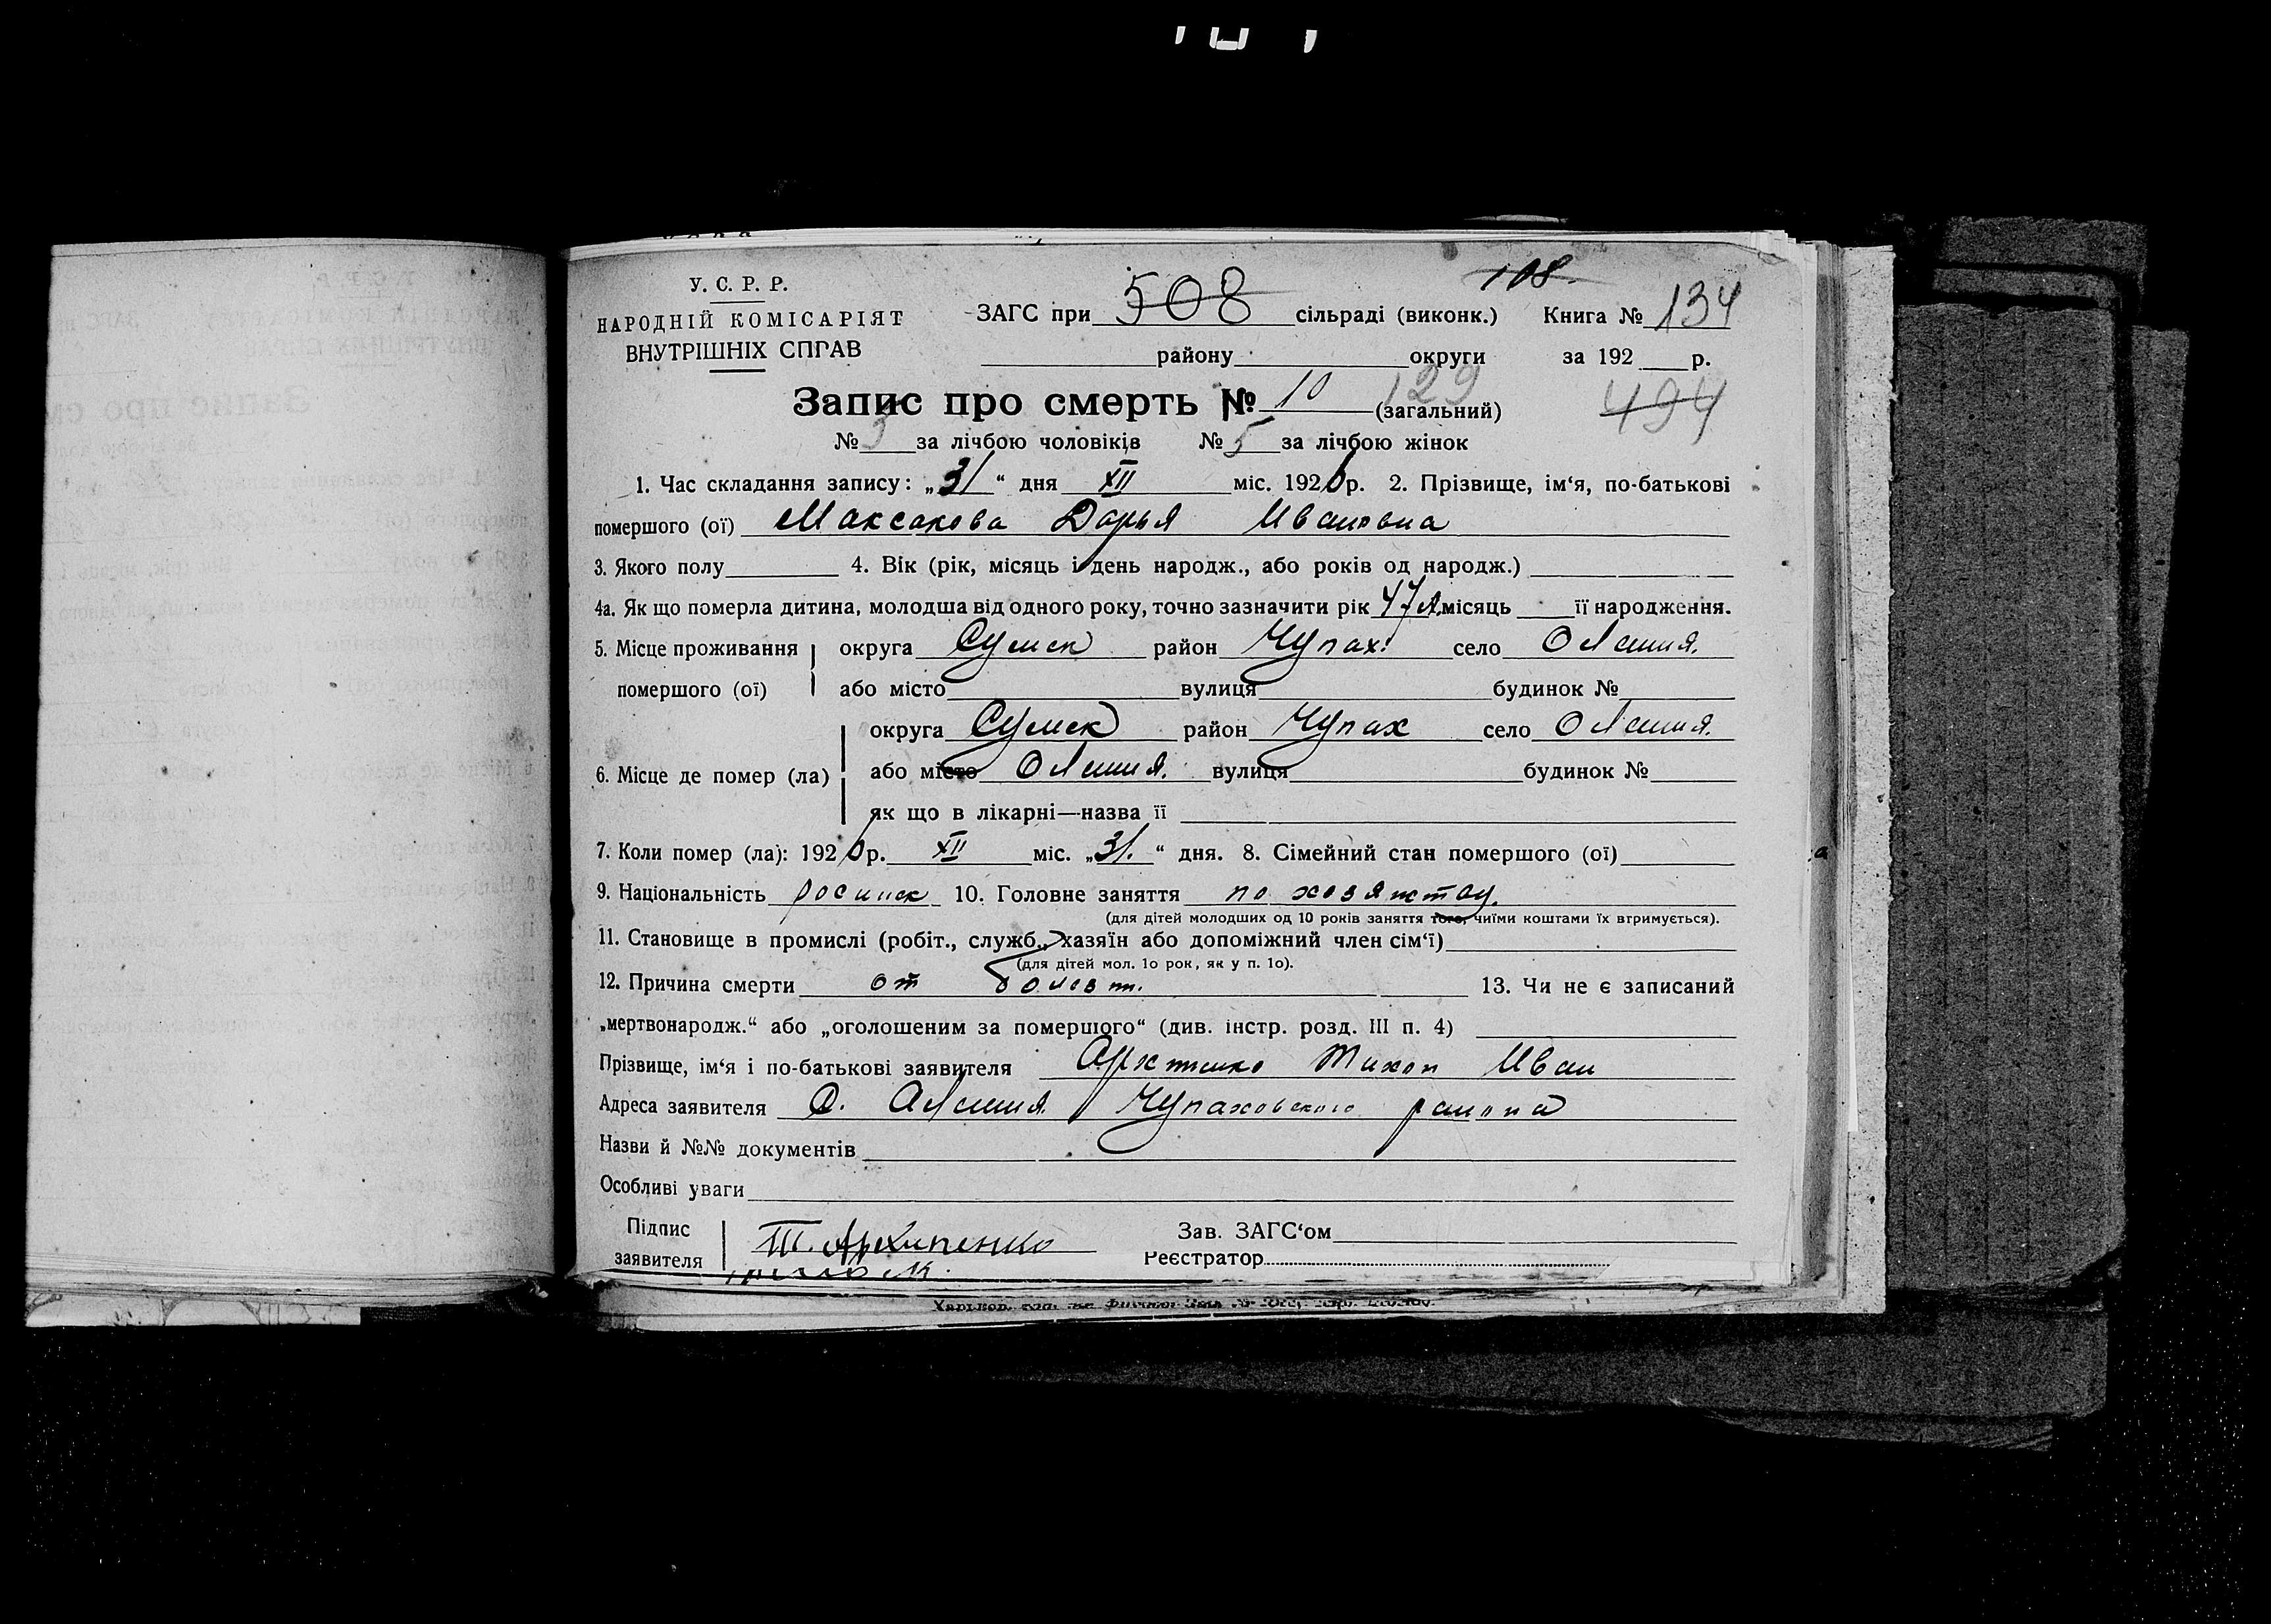 У. С. Р. Р.
НАРОДНІЙ КОМІСАРІЯТ
ВНУТРІШНІХ СПРАВ
108.
ЗАГС при 508 сільраді (виконк.) Книга № 134
району округи за 192 р.
Запис про смерть № 10 (загальний) 129 494
№ 3 за лічбою чоловіків № 5 за лічбою жінок
1. Час складання запису: „31“ дня XII міс. 192 р. 2. Прізвище, ім‘я, по-батькові
помершого (ої) Максакова Дарья Ивановна
3. Якого полу 4. Вік (рік, місяць і день народж., або років од народж.)
4а. Як що померла дитина, молодша від одного року, точно зазначити рік 47 л. місяць її народження.
5. Місце проживання помершого (ої) округа Сумск район Чупах. село Олешня.
або місто вулиця будинок №
6. Місце де помер (ла) округа Сумск район Чупах село Олешня.
або місто Олешня. вулиця будинок №
як що в лікарні—назва її
7. Коли помер (ла): 192 р. XII міс. „31.“ дня. 8. Сімейний стан помершого (ої)
9. Національність 10. Головне заняття по хозяйству.
(для дітей молодших од 10 років заняття того, чиїми коштами їх втримується).
11. Становище в промислі (робіт., служб., хазяїн або допоміжний член сім‘ї)
(для дітей мол. 1о рок, як у п. 1о).
12. Причина смерти от 13. Чи не є записаний
„мертвонародж.“ або „оголошеним за помершого“ (див. інстр. розд. III п. 4)
Прізвище, ім‘я і по-батькові заявителя Тихон Иван
Адреса заявителя С. Алешня Чупаховского района
Назви й №№ документів
Особливі уваги
Підпис заявителя Т. Архипенко Зав. ЗАГС‘ом
Реєстратор